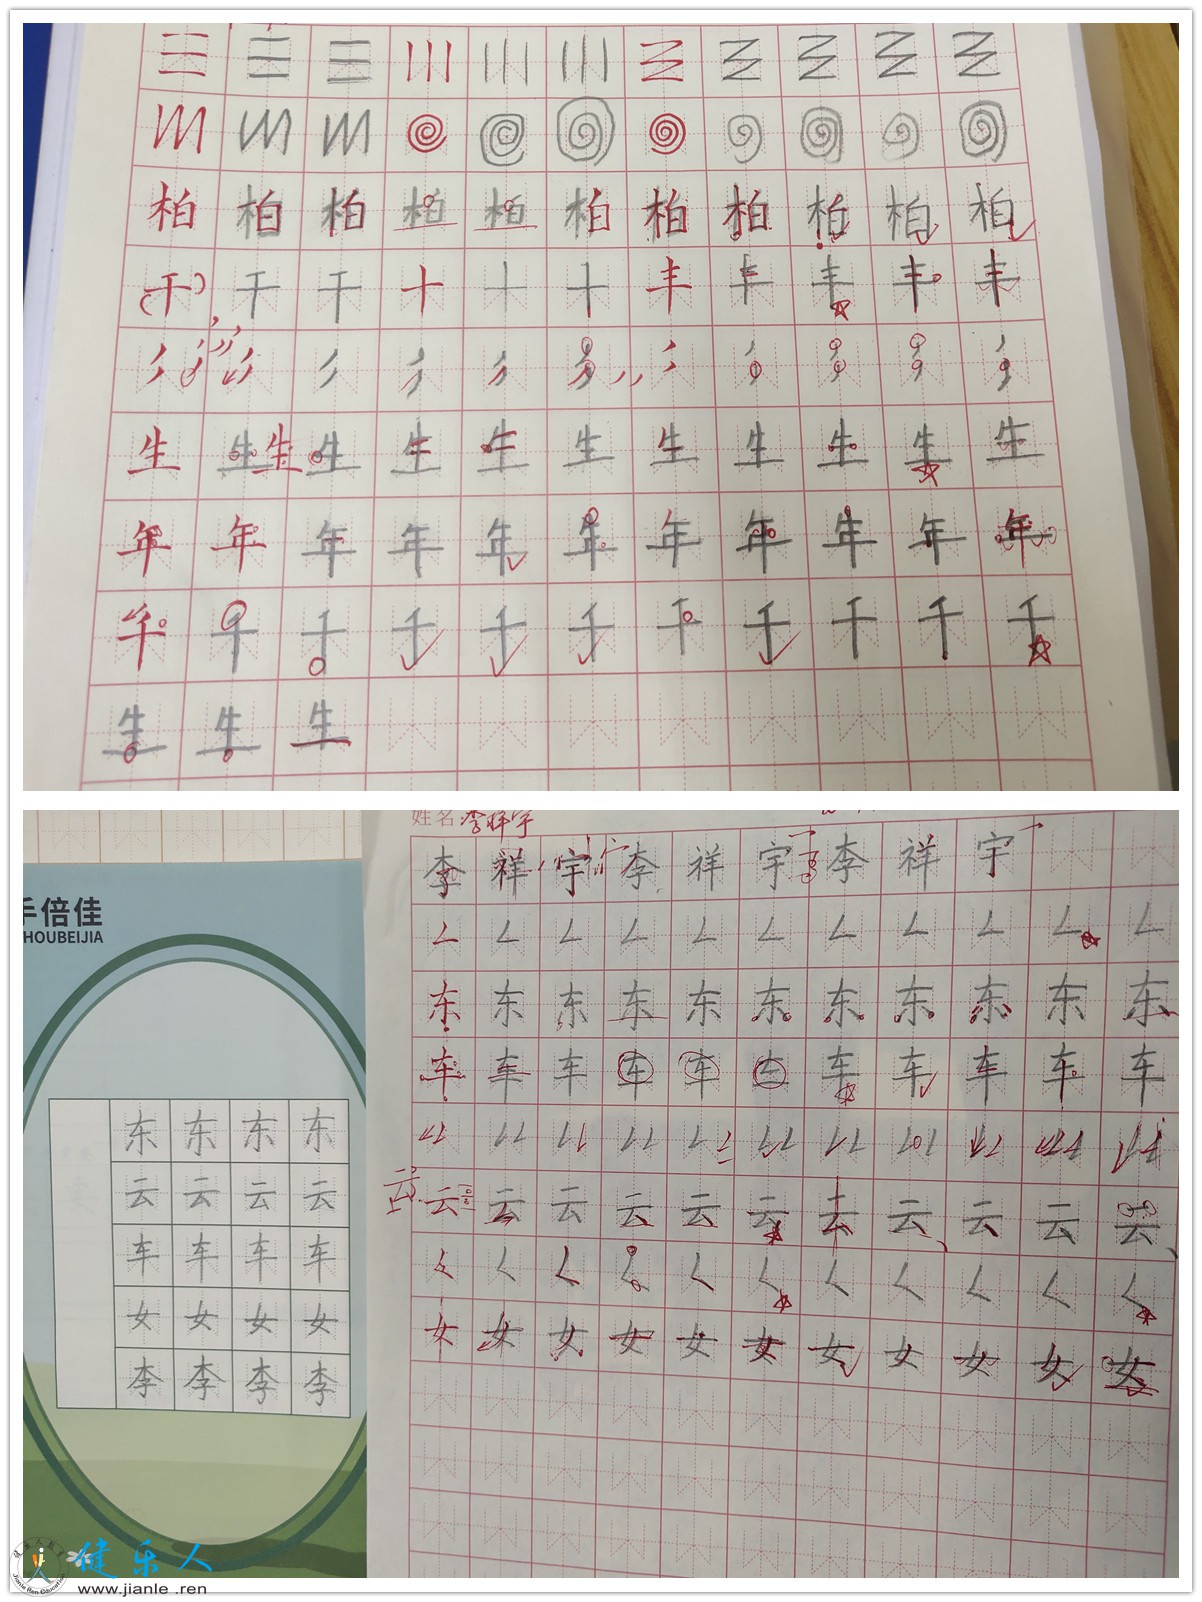 三 三 三
柏 柏 柏 柏 柏 柏 柏 柏 柏 柏 柏
干 干 干 十 十 十 丰 丰 丰 丰 丰
生 生 生 生 生 生 生 生 生 生 生 生
年 年 年 年 年 年 年 年 年 年 年
千 千 千 千 千 千 千 千 千 千 千
生 生 生
手倍佳
SHOUBEIJIA
东 东 东 东
云 云 云 云
车 车 车 车
女 女 女 女
李 李 李 李
姓名 李祥宇
李 祥 宇 李 祥 宇 李 祥 宇
东 东 东 东 东 东 东 东 东 东 东
车 车 车 车 车 车 车 车 车 车 车
云 云 云 云 云 云 云 云 云 云 云 云
女 女 女 女 女 女 女 女 女 女 女
健乐人
www.jianle.ren